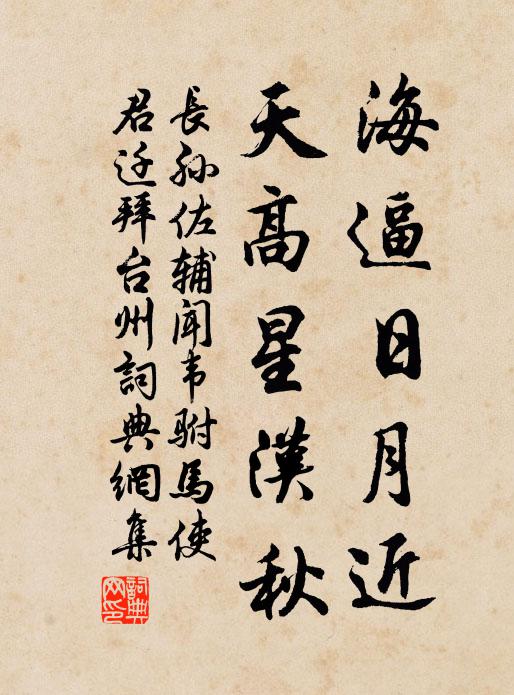 海逼日月近
天高星漢秋
長孫佐輔聞韋駙馬使
君迁拜台州詞典網集
詞典
网印